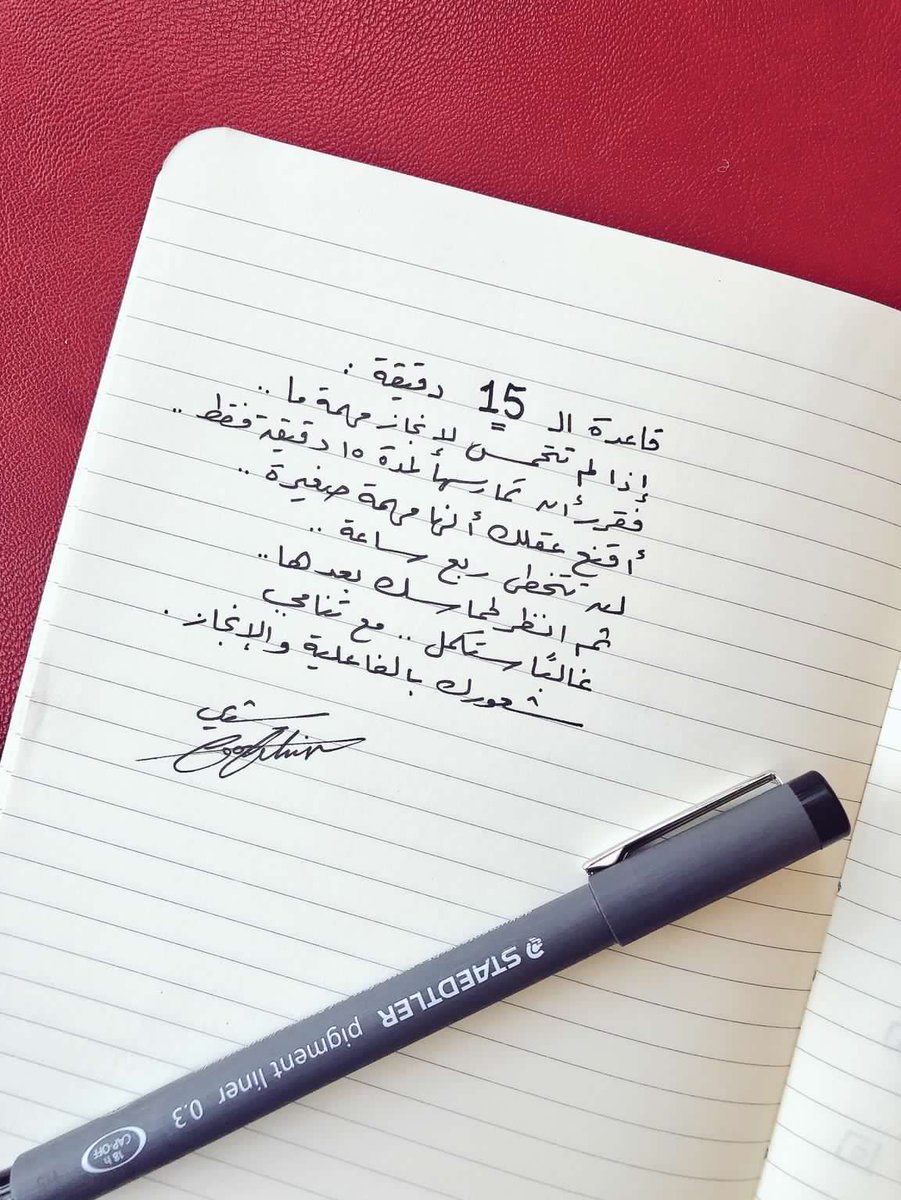 قاعدة الـ 15 دقيقة :
إذا لم تتحمس لإنجاز مهمة ما ..
فقرر أن تمارسها لمدة ١٥ دقيقة فقط ..
أقنع عقلك أنها مهمة صغيرة ..
لن تتخطى ربع ساعة ..
ثم انظر لحماسك بعدها ..
غالبًا ستكمل .. مع تنامي
شعورك بالفاعلية والإنجاز .
STAEDTLER pigment liner 0.3
18 h
CAP-OFF